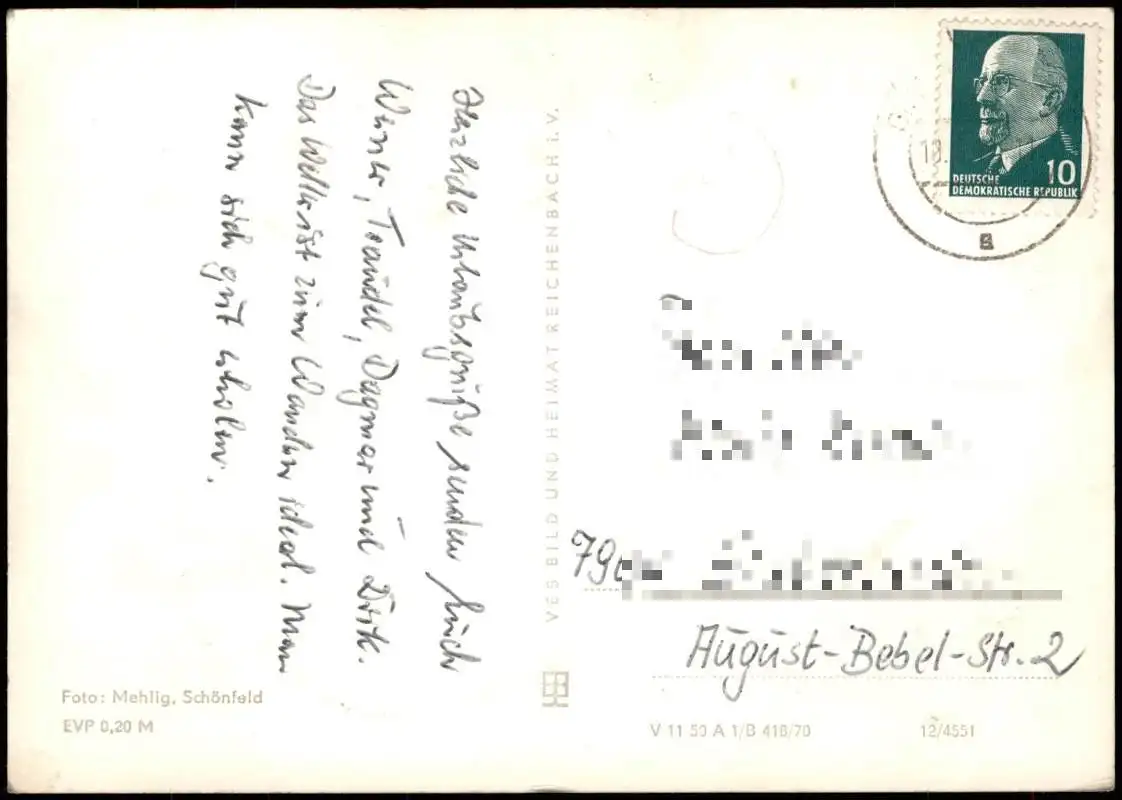 Herzliche Urlaubsgrüße senden Euch
Werner, Traudel, Dagmar und Dirk.
Das Wetter ist zum Wandern ideal. Man
kann sich gut erholen.
VEB BILD UND HEIMAT REICHENBACH I. V.
Foto: Mehlig, Schönfeld
EVP 0,20 M
10
DEUTSCHE
DEMOKRATISCHE REPUBLIK
18.
790
August-Bebel-Str. 2
V 11 50 A 1/B 416/70
12/4551